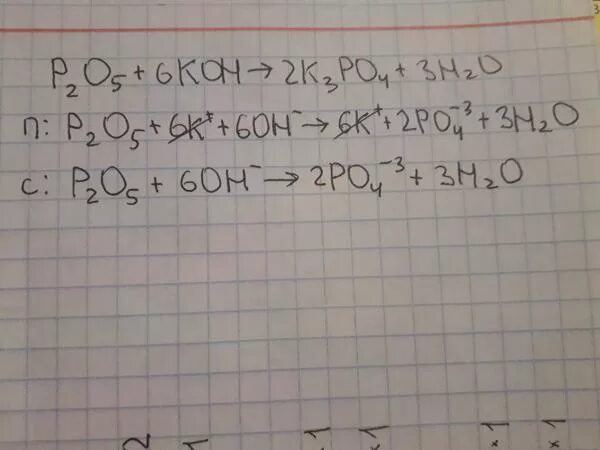 P₂O₅ + 6KOH → 2K₃PO₄ + 3H₂O
П: P₂O₅ + 6K⁺ + 6OH⁻ → 6K⁺ + 2PO₄⁻³ + 3H₂O
С: P₂O₅ + 6OH⁻ → 2PO₄⁻³ + 3H₂O
2 1 ·1 ×1 ×1 ×1